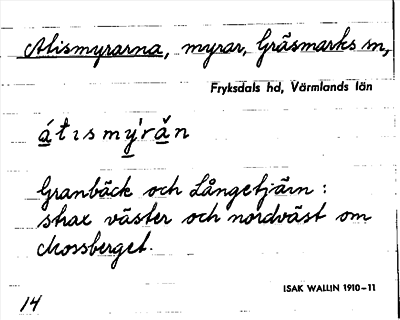 Atismyrarna, myrar, Gräsmarks sn,
Fryksdals hd, Värmlands län
átısmy̍rǎn
Granbäck och Långetjärn :
strax väster och nordväst om
Mossberget.
ISAK WALLIN 1910–11
14